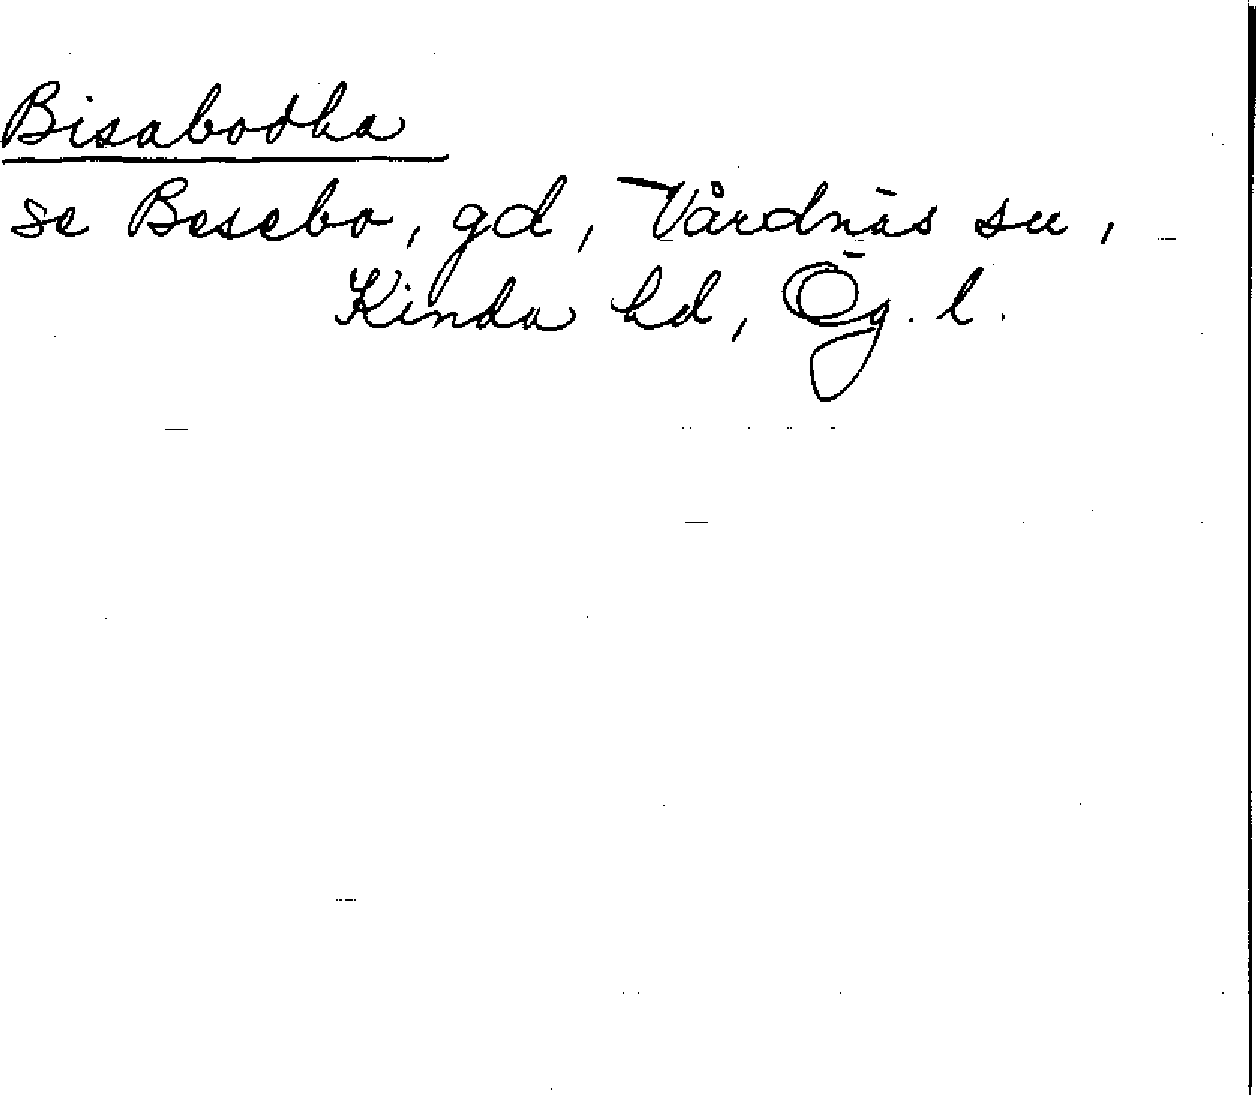 Bisabodha
se Besebo, gd, Vårdnäs sn,
Kinda hd, Ög. l.